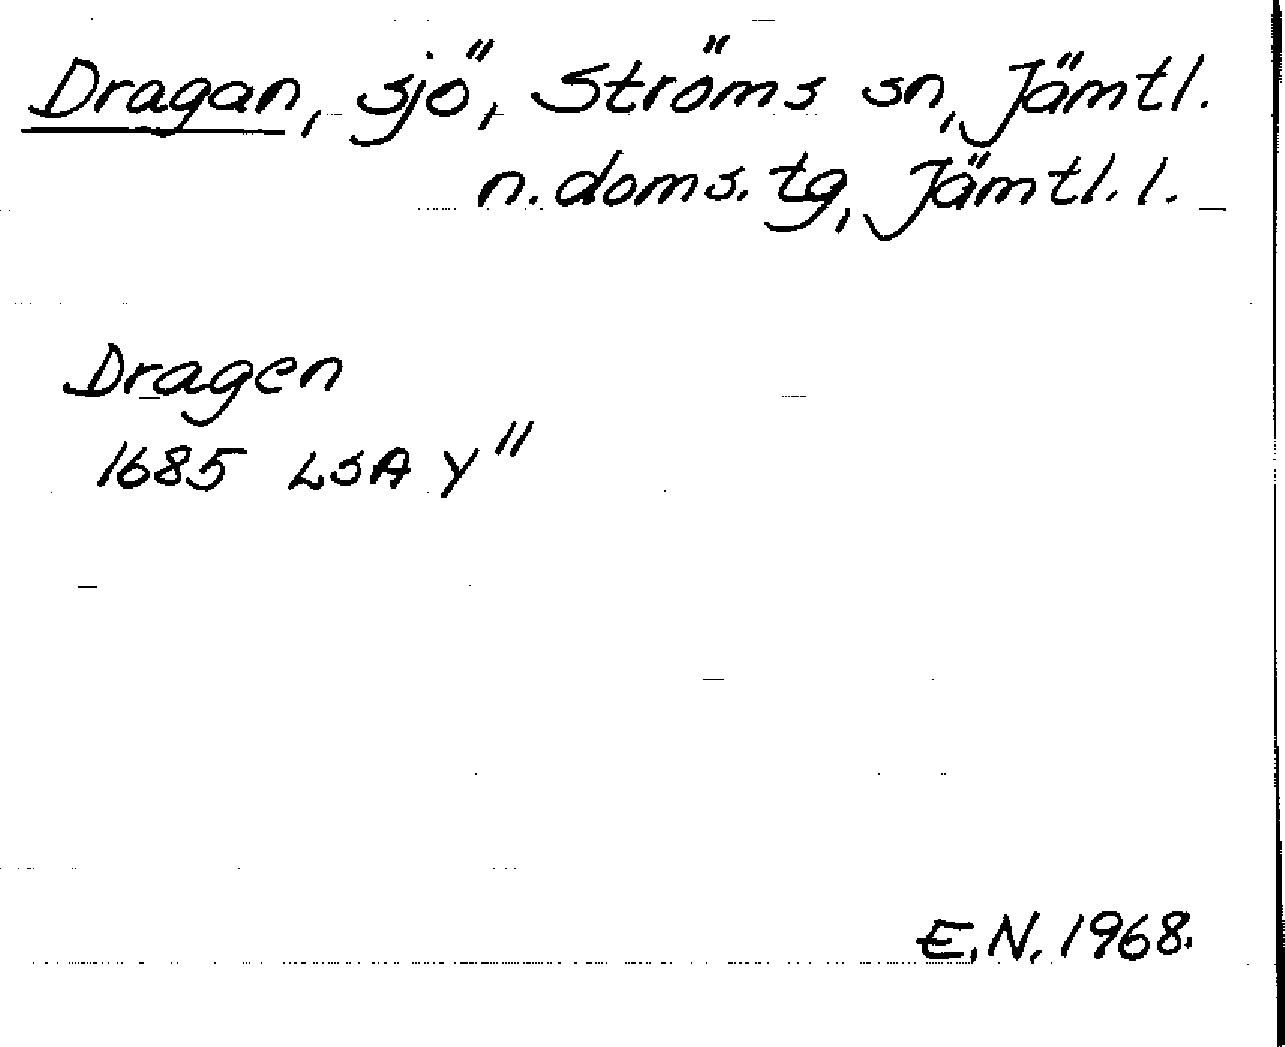 Dragan, sjö, Ströms sn, Jämtl.
n. doms. tg, Jämtl. l.
Dragen
1685 LSA Y"
E.N. 1968.